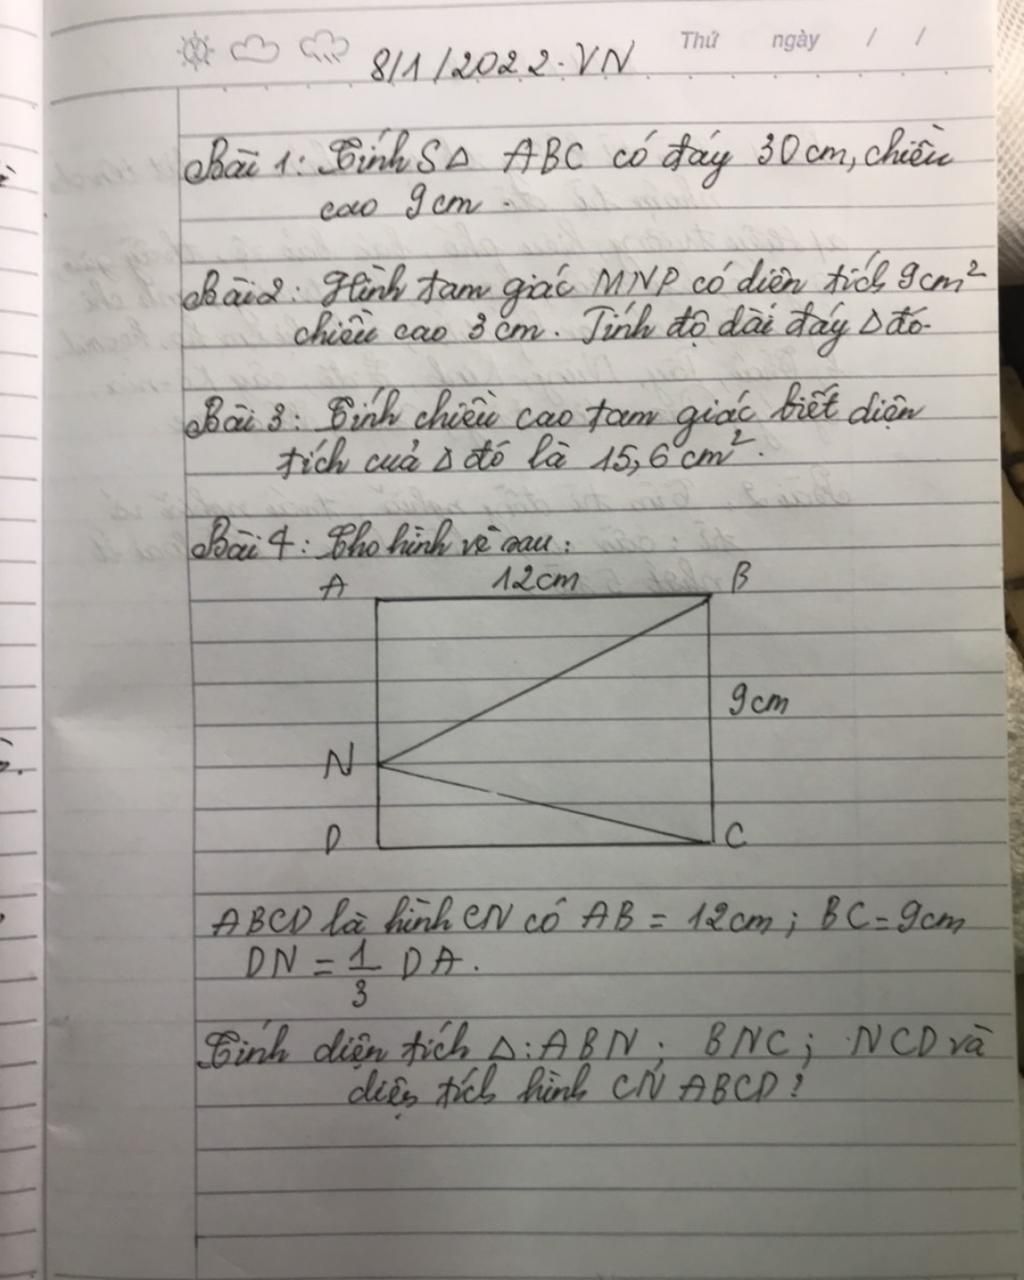 Thứ ngày / /
8/1/2022.VN
Bài 1: Tính S∆ ABC có đáy 30cm, chiều
cao 9cm.
Bài 2: Hình tam giác MNP có diện tích 9cm²
chiều cao 3cm. Tính độ dài đáy ∆ đó.
Bài 3: Tính chiều cao tam giác biết diện
tích cuả ∆ đó là 15,6cm².
Bài 4: Cho hình vẽ sau:
A 12cm B
9cm
N
D C
ABCD là hình CN có AB = 12cm; BC = 9cm
DN = 1/3 DA.
Tính diện tích ∆: ABN; BNC; NCD và
diện tích hình CN ABCD?